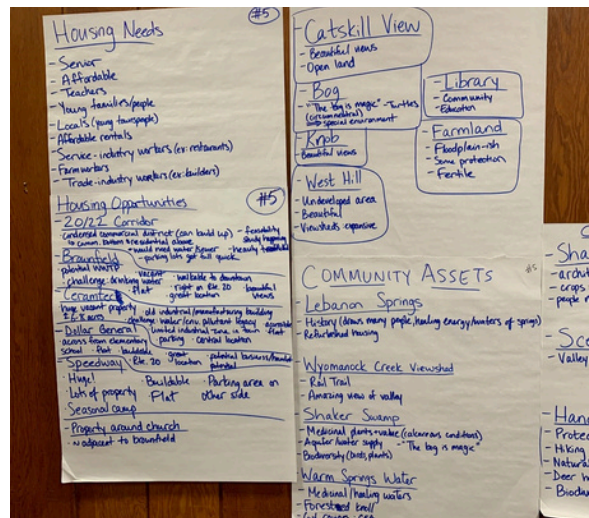 #5
Housing Needs
- Senior
- Affordable
- Teachers
- Young families/people
- Locals (young townspeople)
- Affordable rentals
- Service-industry workers (ex: restaurants)
- Farmworkers
- Trade-industry workers (ex: builders)
Housing Opportunities
#5
- 20/22 Corridor
condensed commercial district (can build up) - feasibility
to comm. bottom & residential above study happening
- would need water/sewer - heavy
- parking lots get full quick
- Brownfield
potential WWTP · vacant · walkable to downtown
· challenge: drinking water · flat · right on Rte. 20 · beautiful
· great location views
- Ceramtec
huge vacant property · old industrial/manufacturing building
acres challenge: water/env. pollutant legacy · accessible
- Dollar General · limited industrial zone in town · flat
· across from elementary · parking · central location
school · flat · buildable
- Speedway · Rte. 20 · great location · potential business/
potential
· Huge! · Buildable · Parking area on
· Lots of property · Flat other side
· Seasonal camp
- Property around church
· adjacent to brownfield
- Catskill View
- Beautiful views
- Open land
- Bog
- "The bog is magic" - Turtles
(circumneutral)
special environment
- Knob
- Beautiful views
- West Hill
- Undeveloped area
- Beautiful
- Viewsheds - expansive
- Library
- Community
- Education
- Farmland
- Floodplain-rich
- Some protection
- Fertile
COMMUNITY ASSETS
#5
- Lebanon Springs
- History (draws many people, healing energy/waters of springs)
- Refurbished housing
- Wyomanock Creek Viewshed
- Rail Trail
- Amazing view of valley
- Shaker Swamp
- Medicinal plants + value (calcareous conditions)
- Aquifer/water supply - "The bog is magic"
- Biodiversity (birds, plants)
- Warm Springs Water
- Medicinal/healing waters
- Forested knoll
- Sha
- archit
- crops
- people m
- Sce
- Valley
- Han
- Protec
- Hiking
- Natura
- Deer h
- Biodiv